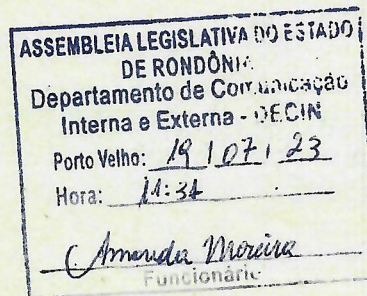 ASSEMBLEIA LEGISLATIVA DO ESTADO
DE RONDÔNIA
Departamento de Comunicação
Interna e Externa - DECIN
Porto Velho: 19 / 07 / 23
Hora: 11:34
Amanda Moreira
Funcionário